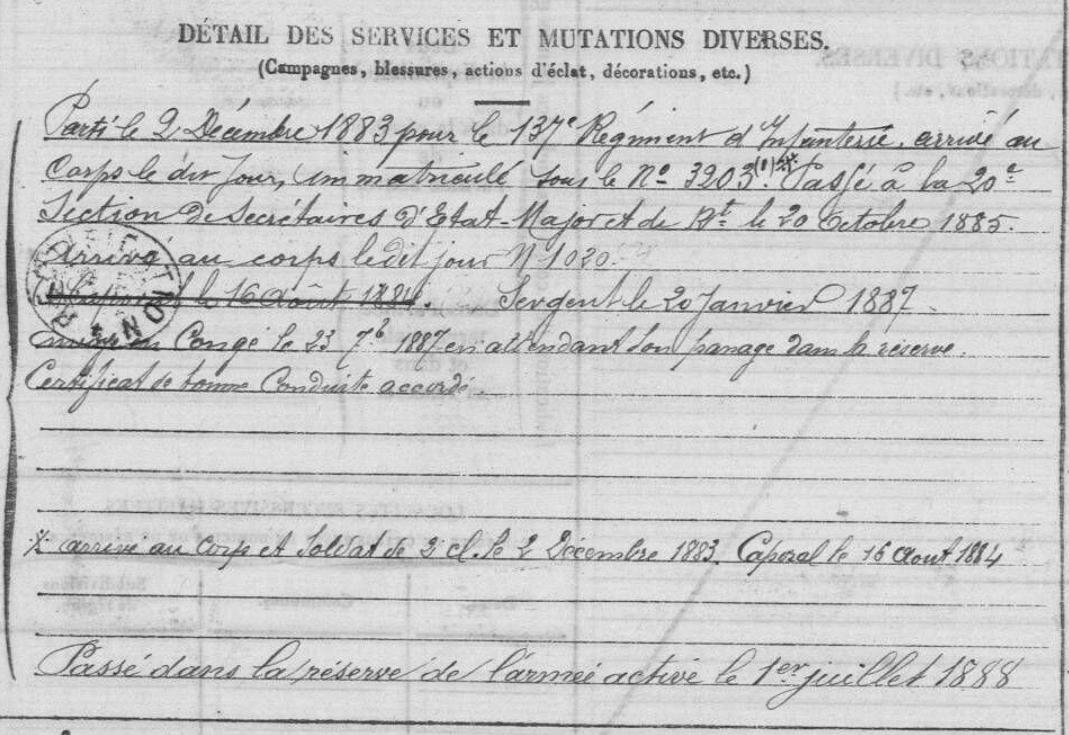 DÉTAIL DES SERVICES ET MUTATIONS DIVERSES.
(Campagnes, blessures, actions d'éclat, décorations, etc.)
Parti le 2 Décembre 1883 pour le 137e Régiment d'Infanterie, arrivé au
Corps le dit Jour, immatriculé sous le No 3203. (1) Passé à la 20e
Section de Secrétaires d'Etat-Major et de Rt le 20 Octobre 1885.
Arrivé au corps ledit jour N 1020.
le 16 août 1884. Sergent le 20 Janvier 1887.
Envoyé en Congé le 23 7b 1887 en attendant son passage dans la réserve.
Certificat de bonne Conduite accordé.
arrivé au Corps et Soldat de 2 cl. le 2 Décembre 1883. Caporal le 16 Aout 1884
Passé dans la réserve de l'armée active le 1er juillet 1888